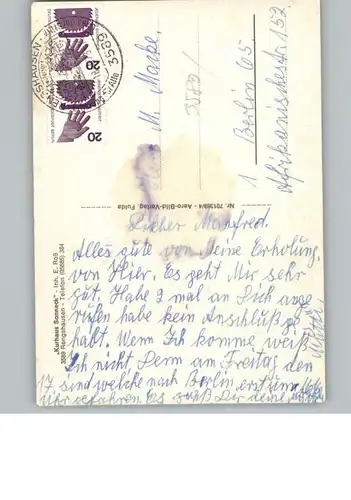 20
20
3589
M. Macke.
3580/1
1 Berlin 65
Afrikanischestr. 152
Nr. 70138/4 - Aero-Bild-Verlag, Fulda
"Kurhaus Sonneck" - Inh. E. Roß
3589 Rengshausen - Telefon (05685) 384
Lieber Manfred.
Alles gute von Meine Erholung
von Hier. Es geht Mir sehr
gut. Habe 2 mal an Dich ange
rufen habe kein Anschluß ge
habt. Wenn Ich komme weiß
Ich nicht Denn am Freitag den
17 sind welche nach Berlin erst um
Uhr gefahren. Es grüß Dir deine